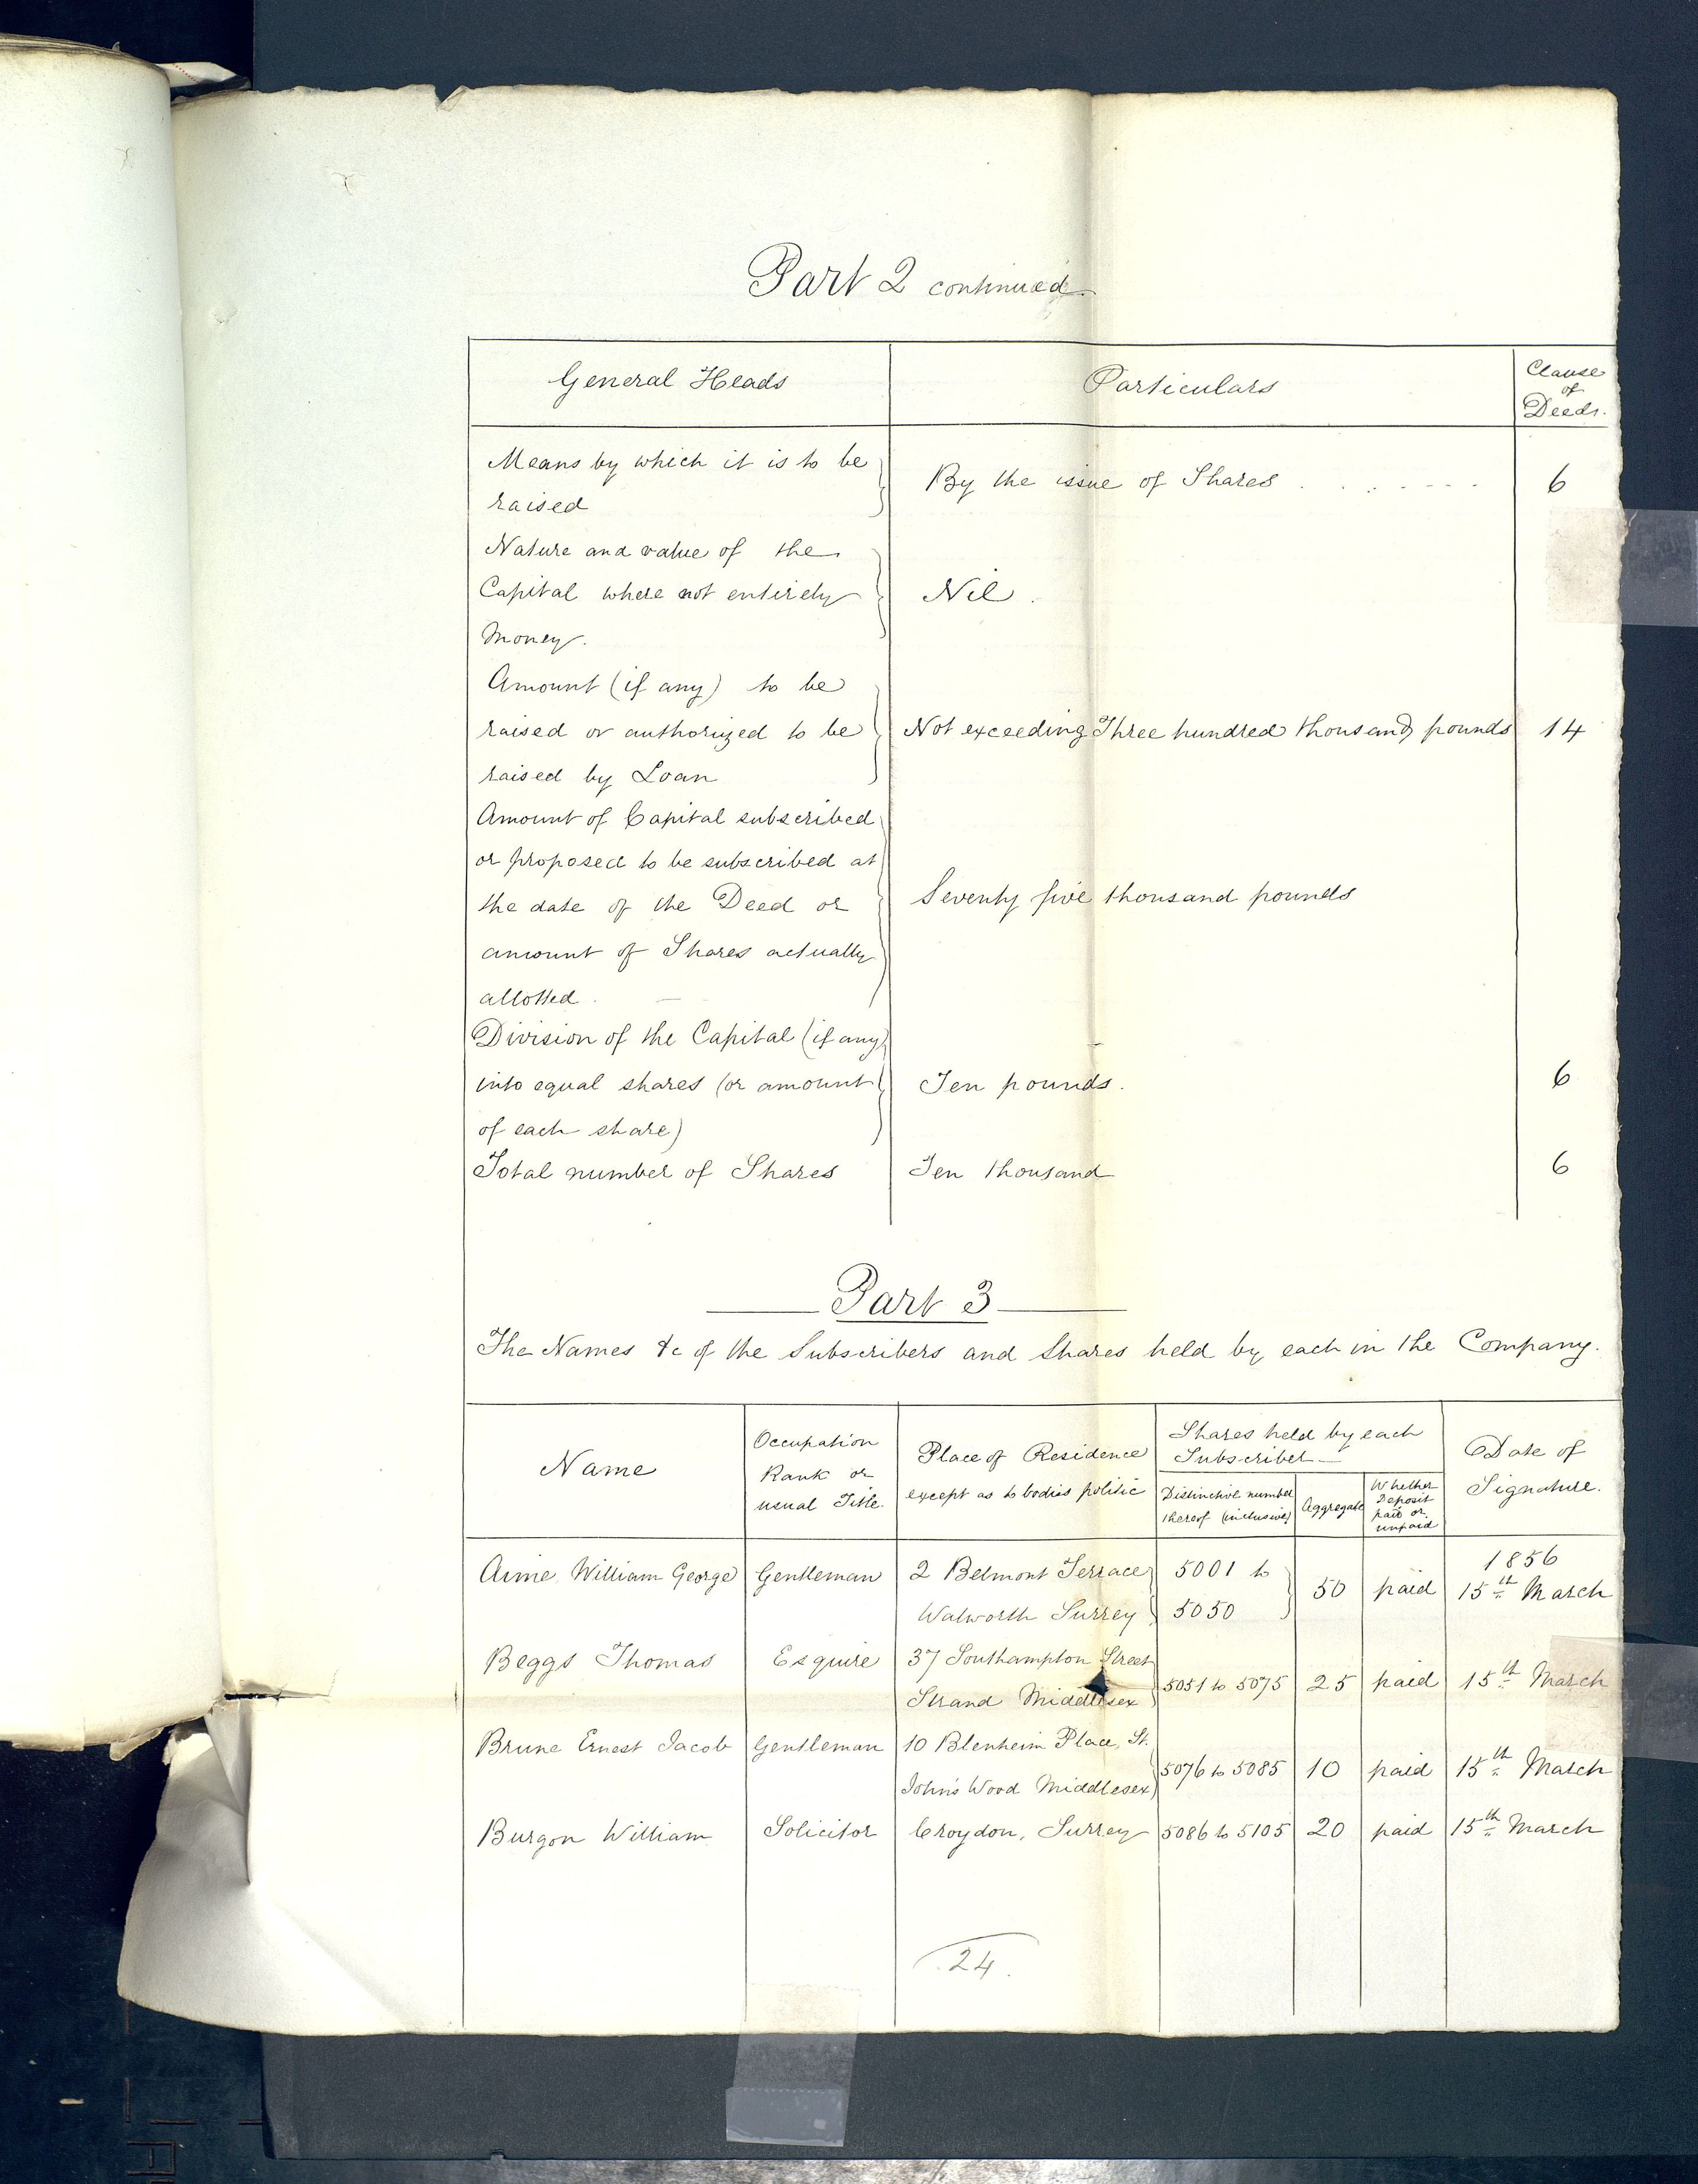 Part 2 continued
General Heads
Particulars
Clause
of
Deeds.
Means by which it is to be
raised
By the issue of Shares . . . . - - -
6
Nature and value of the
Capital where not entirely
Money.
Nil.
Amount (if any) to be
raised or authorized to be
raised by Loan
Not exceeding Three hundred thousand pounds
14
Amount of Capital subscribed
or proposed to be subscribed at
the date of the Deed or
amount of Shares actually
allotted.
Seventy five thousand pounds
Division of the Capital (if any)
into equal shares (or amount
of each share)
Ten pounds.
6
Total number of Shares
Ten thousand
6
Part 3
The Names &c of the Subscribers and Shares held by each in the Company.
Name
Occupation
Rank or
usual Title.
Place of Residence
except as to bodies politic
Shares held by each
Subscriber
Distinctive number
thereof (inclusive)
Aggregate
Whether
Deposit
paid or
unpaid
Date of
Signature.
Aime William George
Gentleman
2 Belmont Terrace
Walworth Surrey
5001 to
5050
50
paid
1856
15th March
Beggs Thomas
Esquire
37 Southampton Street
Strand Middlesex
5051 to 5075
25
paid
15th March
Brune Ernest Jacob
Gentleman
10 Blenheim Place, St.
John's Wood Middlesex
5076 to 5085
10
paid
15th March
Burgon William
Solicitor
Croydon, Surrey
5086 to 5105
20
paid
15th March
24.